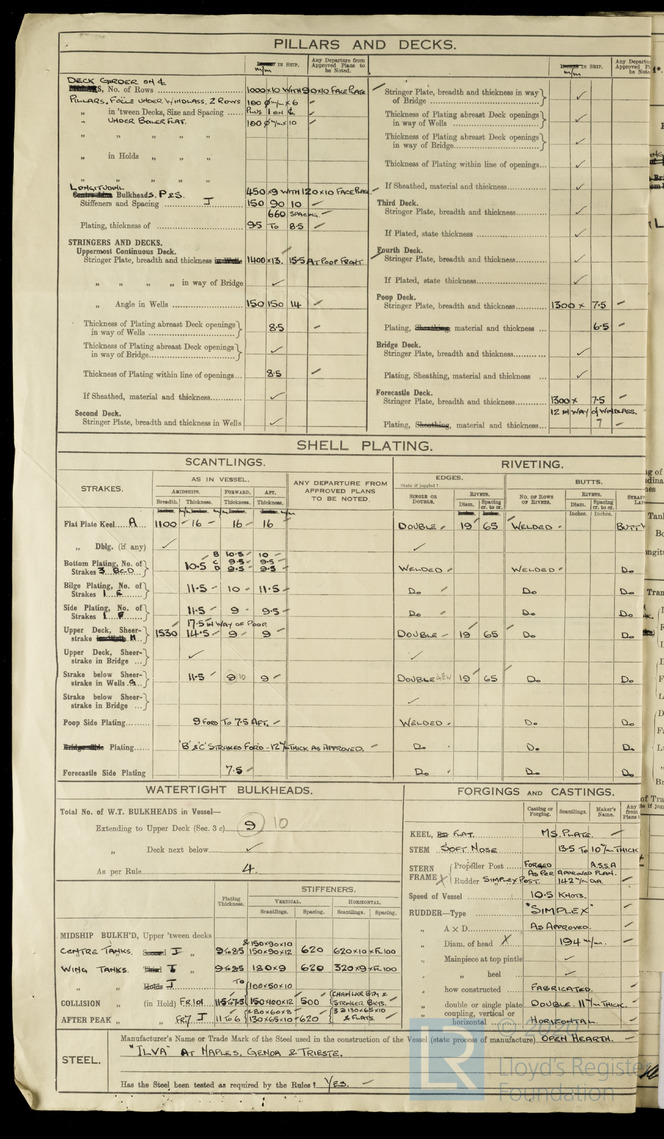 PILLARS AND DECKS.
m/m IN SHIP. Any Departure from Approved Plans to be Noted.
DECK GIRDER ON 4
No. of Rows 1000×10 WITH 90×10 FACE PLATE
PILLARS, FOC'LE UNDER WINDLASS. 2 ROWS 100 ϕ m/m × 6
„ in 'tween Decks, Size and Spacing
„ UNDER BOILER FLAT. 100 ϕ m/m × 10
„ „ „ „
„ in Holds „ „
„ „ „ „
LONGITUDINAL
Bulkheads. P & S. 450×9 WITH 120×10 FACE PLATE
Stiffeners and Spacing I 150 90 10
660 SPACING
Plating, thickness of 9.5 TO 8.5
STRINGERS AND DECKS.
Uppermost Continuous Deck.
Stringer Plate, breadth and thickness 1400×13. 15.5 AT POOP FRONT
„ „ „ „ in way of Bridge ✓
„ Angle in Wells 150 150 14
Thickness of Plating abreast Deck openings in way of Wells 8.5
Thickness of Plating abreast Deck openings in way of Bridge ✓
Thickness of Plating within line of openings... 8.5
If Sheathed, material and thickness ✓
Second Deck.
Stringer Plate, breadth and thickness in Wells ✓
m/m IN SHIP. Any Departure from Approved Plans to be Noted.
Stringer Plate, breadth and thickness in way of Bridge ✓
Thickness of Plating abreast Deck openings in way of Wells ✓
Thickness of Plating abreast Deck openings in way of Bridge ✓
Thickness of Plating within line of openings... ✓
If Sheathed, material and thickness ✓
Third Deck.
Stringer Plate, breadth and thickness ✓
If Plated, state thickness ✓
Fourth Deck.
Stringer Plate, breadth and thickness ✓
If Plated, state thickness ✓
Poop Deck.
Stringer Plate, breadth and thickness 1300 × 7.5
Plating, Sheathing, material and thickness 6.5
Bridge Deck.
Stringer Plate, breadth and thickness ✓
Plating, Sheathing, material and thickness ✓
Forecastle Deck.
Stringer Plate, breadth and thickness 1300× 7.5
12 IN WAY OF WINDLASS.
Plating, Sheathing, material and thickness 7
SHELL PLATING.
SCANTLINGS. RIVETING.
STRAKES. AS IN VESSEL. ANY DEPARTURE FROM APPROVED PLANS TO BE NOTED. EDGES. BUTTS.
AMIDSHIPS. FORWARD. AFT. State if joggled? RIVETS. No. OF ROWS OF RIVETS. RIVETS.
Breadth. Thickness. Thickness. Thickness. SINGLE OR DOUBLE. Diam. Spacing cr. to cr. Diam. Spacing cr. to cr.
Inches. Inches.
Flat Plate Keel A 1100 16 16 16 DOUBLE 19 65 WELDED BUTT
„ Dblg. (if any) ✓ ✓
Bottom Plating, No. of Strakes 3 B C D 10.5 B 10.5 10 C 9.5 9.5 D 9.5 9.5 WELDED WELDED Do
Bilge Plating, No. of Strakes 1 E 11.5 10 11.5 Do Do Do
Side Plating, No. of Strakes 1 F 11.5 9 9.5 Do Do Do
17.5 IN WAY OF POOP
Upper Deck, Sheerstrake H 1530 14.5 9 9 DOUBLE 19 65 Do Do
Upper Deck, Sheerstrake in Bridge ✓ ✓
Strake below Sheerstrake in Wells G 11.5 9 10 9 DOUBLE 19 65 Do Do
Strake below Sheerstrake in Bridge ✓
Poop Side Plating 9 FORD TO 7.5 AFT. WELDED Do Do
Bridge Side Plating 'B' & 'C' STRAKES FORD - 12 m/m THICK AS APPROVED. Do Do Do
Forecastle Side Plating 7.5 Do Do Do
WATERTIGHT BULKHEADS.
Total No. of W.T. BULKHEADS in Vessel—
Extending to Upper Deck (Sec. 3 c) 9 10
„ Deck next below ✓
As per Rule 4.
STIFFENERS.
Plating Thickness. VERTICAL. HORIZONTAL.
Scantlings. Spacing. Scantlings. Spacing.
MIDSHIP BULKH'D, Upper 'tween decks
CENTRE TANKS. I „ 150×90×12 620 620×10 × F.100
WING TANKS. I „ 180×9 620 320×9 × F.100
„ „ Holds I TO 100×50×10
COLLISION „ (in Hold) FR.101 150×100×12 500
AFTER PEAK „ FR 7 I 11 TO 6 130×65×10 620 & FLATS.
FORGINGS AND CASTINGS.
Casting or Forging. Scantlings. Maker's Name. Any from Plans
KEEL, FLAT. M.S. PLATE.
STEM SOFT NOSE 13.5 TO 10 m/m THICK
STERN FRAME Propeller Post FORGED A.S.S.A
AS PER APPROVED PLAN.
Rudder SIMPLEX POST. 142 m/m DIA
Speed of Vessel 10.5 KNOTS.
RUDDER—Type "SIMPLEX"
„ A × D AS APPROVED.
„ Diam. of head 194 m/m.
„ Mainpiece at top pintle
„ „ heel ✓
„ how constructed FABRICATED.
„ double or single plate DOUBLE. 11 m/m THICK.
„ coupling, vertical or horizontal HORIZONTAL
STEEL.
Manufacturer's Name or Trade Mark of the Steel used in the construction of the Vessel (state process of manufacture) OPEN HEARTH.
"ILVA" AT NAPLES, GENOA & TRIESTE.
Has the Steel been tested as required by the Rules? YES.
LR
Lloyd's Register
Foundation